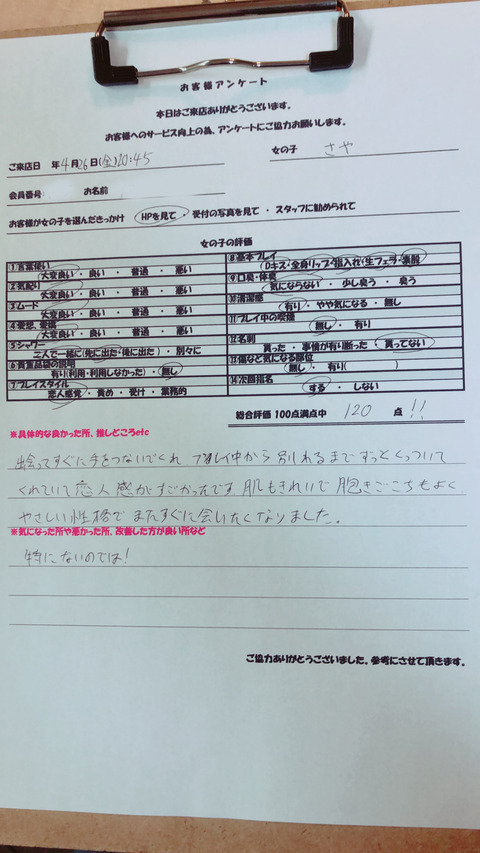 お客様アンケート
本日はご来店ありがとうございます。
お客様へのサービス向上の為、アンケートにご協力お願いします。
ご来店日 年4月26日(金)20:45 女の子 さや
会員番号: お名前
お客様が女の子を選んだきっかけ HPを見て ・ 受付の写真を見て ・ スタッフに勧められて
女の子の評価
1 言葉使い
大変良い ・ 良い ・ 普通 ・ 悪い
2 気配り
大変良い ・ 良い ・ 普通 ・ 悪い
3 ムード
大変良い ・ 良い ・ 普通 ・ 悪い
4 愛想、愛嬌
大変良い ・ 良い ・ 普通 ・ 悪い
5 シャワー
2人で一緒に(先に出た・後に出た) ・ 別々に
6 貴重品袋の説明
有り(利用・利用しなかった) ・ 無し
7 プレイスタイル
恋人感覚 ・ 責め ・ 受け ・ 業務的
8 基本プレイ
(Dキス・全身リップ・指入れ・生フェラ・素股
9 口臭・体臭
気にならない ・ 少し臭う ・ 臭う
10 清潔感
有り ・ やや気になる ・ 無し
11 プレイ中の喫煙
無し ・ 有り
12 名刺
貰った ・ 事情が有り断った ・ 貰ってない
13 傷など気になる部位
無し ・ 有り( )
14 次回指名
する ・ しない
総合評価 100点満点中 120 点 !!
※具体的な良かった所、推しどころetc
出会ってすぐに手をつないでくれ プレイ中から別れるまでずっとくっついて
くれていて恋人感がすごかったです 肌もきれいで抱きごこちもよく
やさしい性格でまたすぐに会いたくなりました。
※気になった所や悪かった所、改善した方が良い所など
特にないのでは!
ご協力ありがとうございました。参考にさせて頂きます。